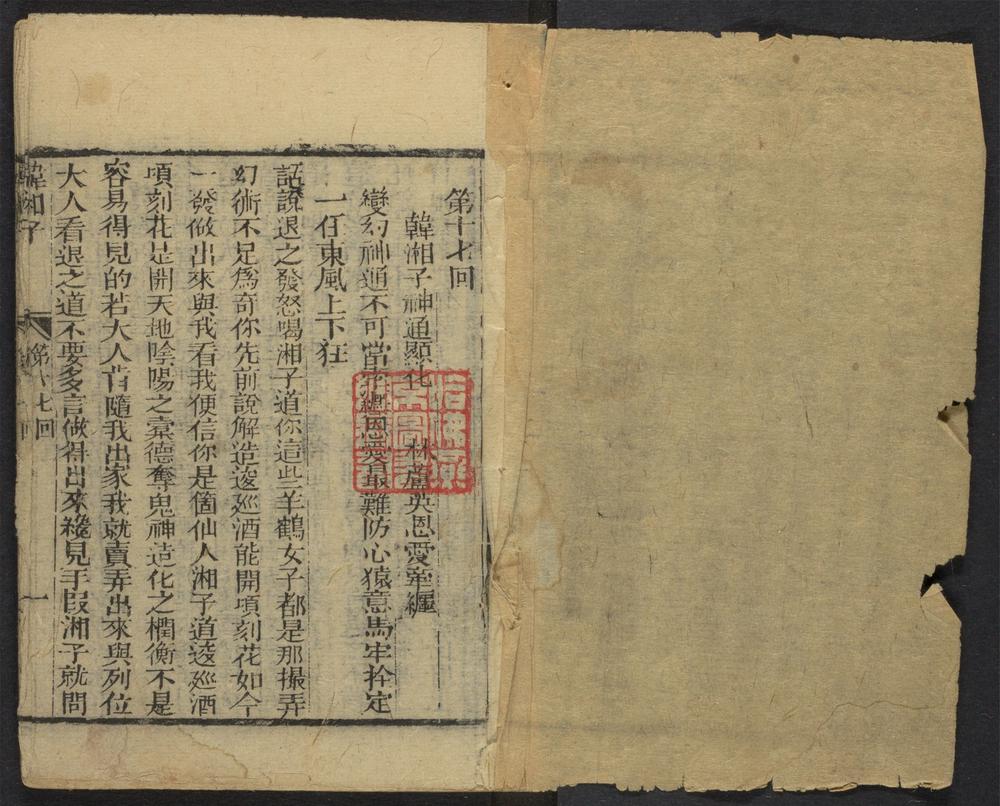 第十七回
韓湘子神通顯化　林蘆英恩愛牽纏
變幻神通不可當 總恩愛最難防心猿意馬牢拴定
一任東風上下狂
話說退之發怒喝湘子道你這些羊鶴女子都是那撮弄
幻術不足爲奇你先前說解造逡廵酒能開頃刻花如今
一發做出來與我看我便信你是箇仙人湘子道逡廵酒
頃刻花是開天地陰陽之橐德奪鬼神造化之樞衡不是
容易得見的若大人肯隨我出家我就賣弄出來與列位
大人看退之道不要多言做得出來纔見手段湘子就問
韓湘子
第十七回
一